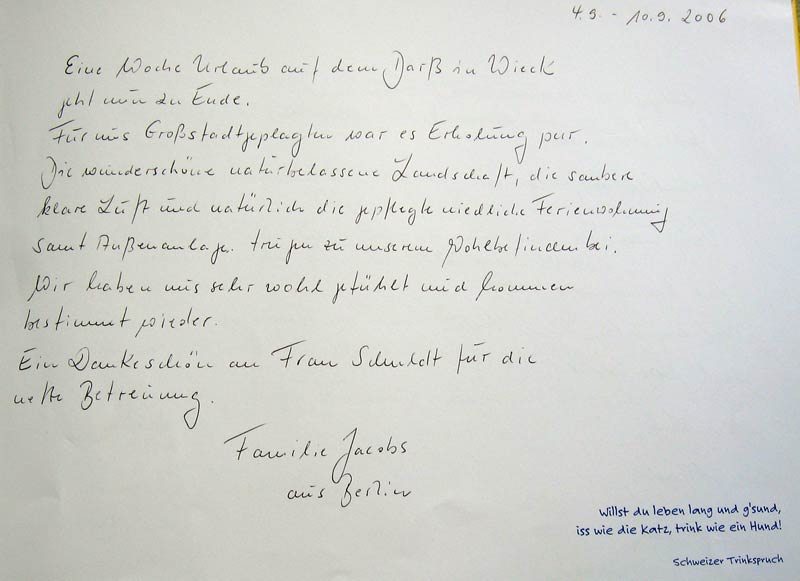 4.9. - 10.9. 2006
Eine Woche Urlaub auf dem Darß in Wieck
geht nun zu Ende.
Für uns Großstadtgeplagten war es Erholung pur.
Die wunderschöne naturbelassene Landschaft, die saubere
klare Luft und natürlich die gepflegte niedliche Ferienwohnung
samt Außenanlage. trugen zu unserem Wohlbefinden bei.
Wir haben uns sehr wohl gefühlt und kommen
bestimmt wieder.
Ein Dankeschön an Frau Schmidt für die
nette Betreuung.
Familie Jacobs
aus Berlin
Willst du leben lang und g'sund,
iss wie die Katz, trink wie ein Hund!
Schweizer Trinkspruch